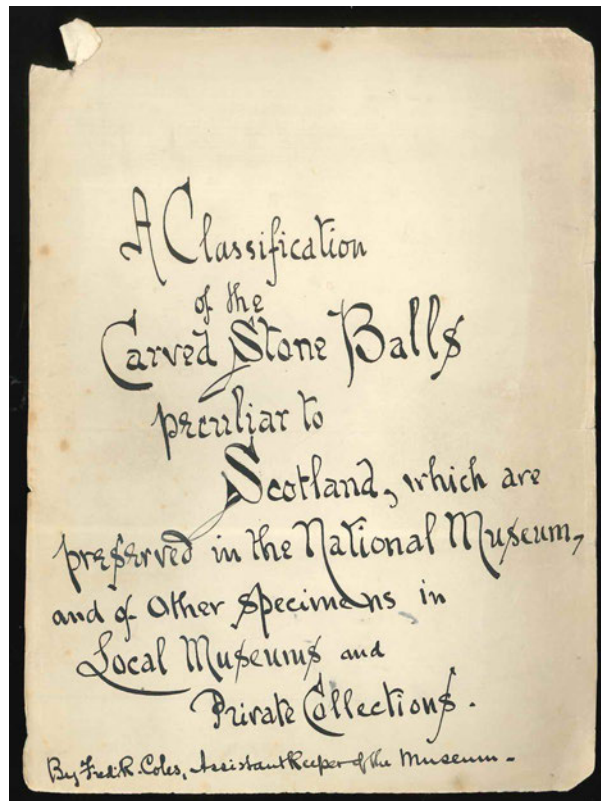 A Classification
of the
Carved Stone Balls
peculiar to
Scotland, which are
preserved in the National Museum,
and of Other Specimens in
Local Museums and
Private Collections.
By Fred. R. Coles, Assistant Keeper of the Museum.